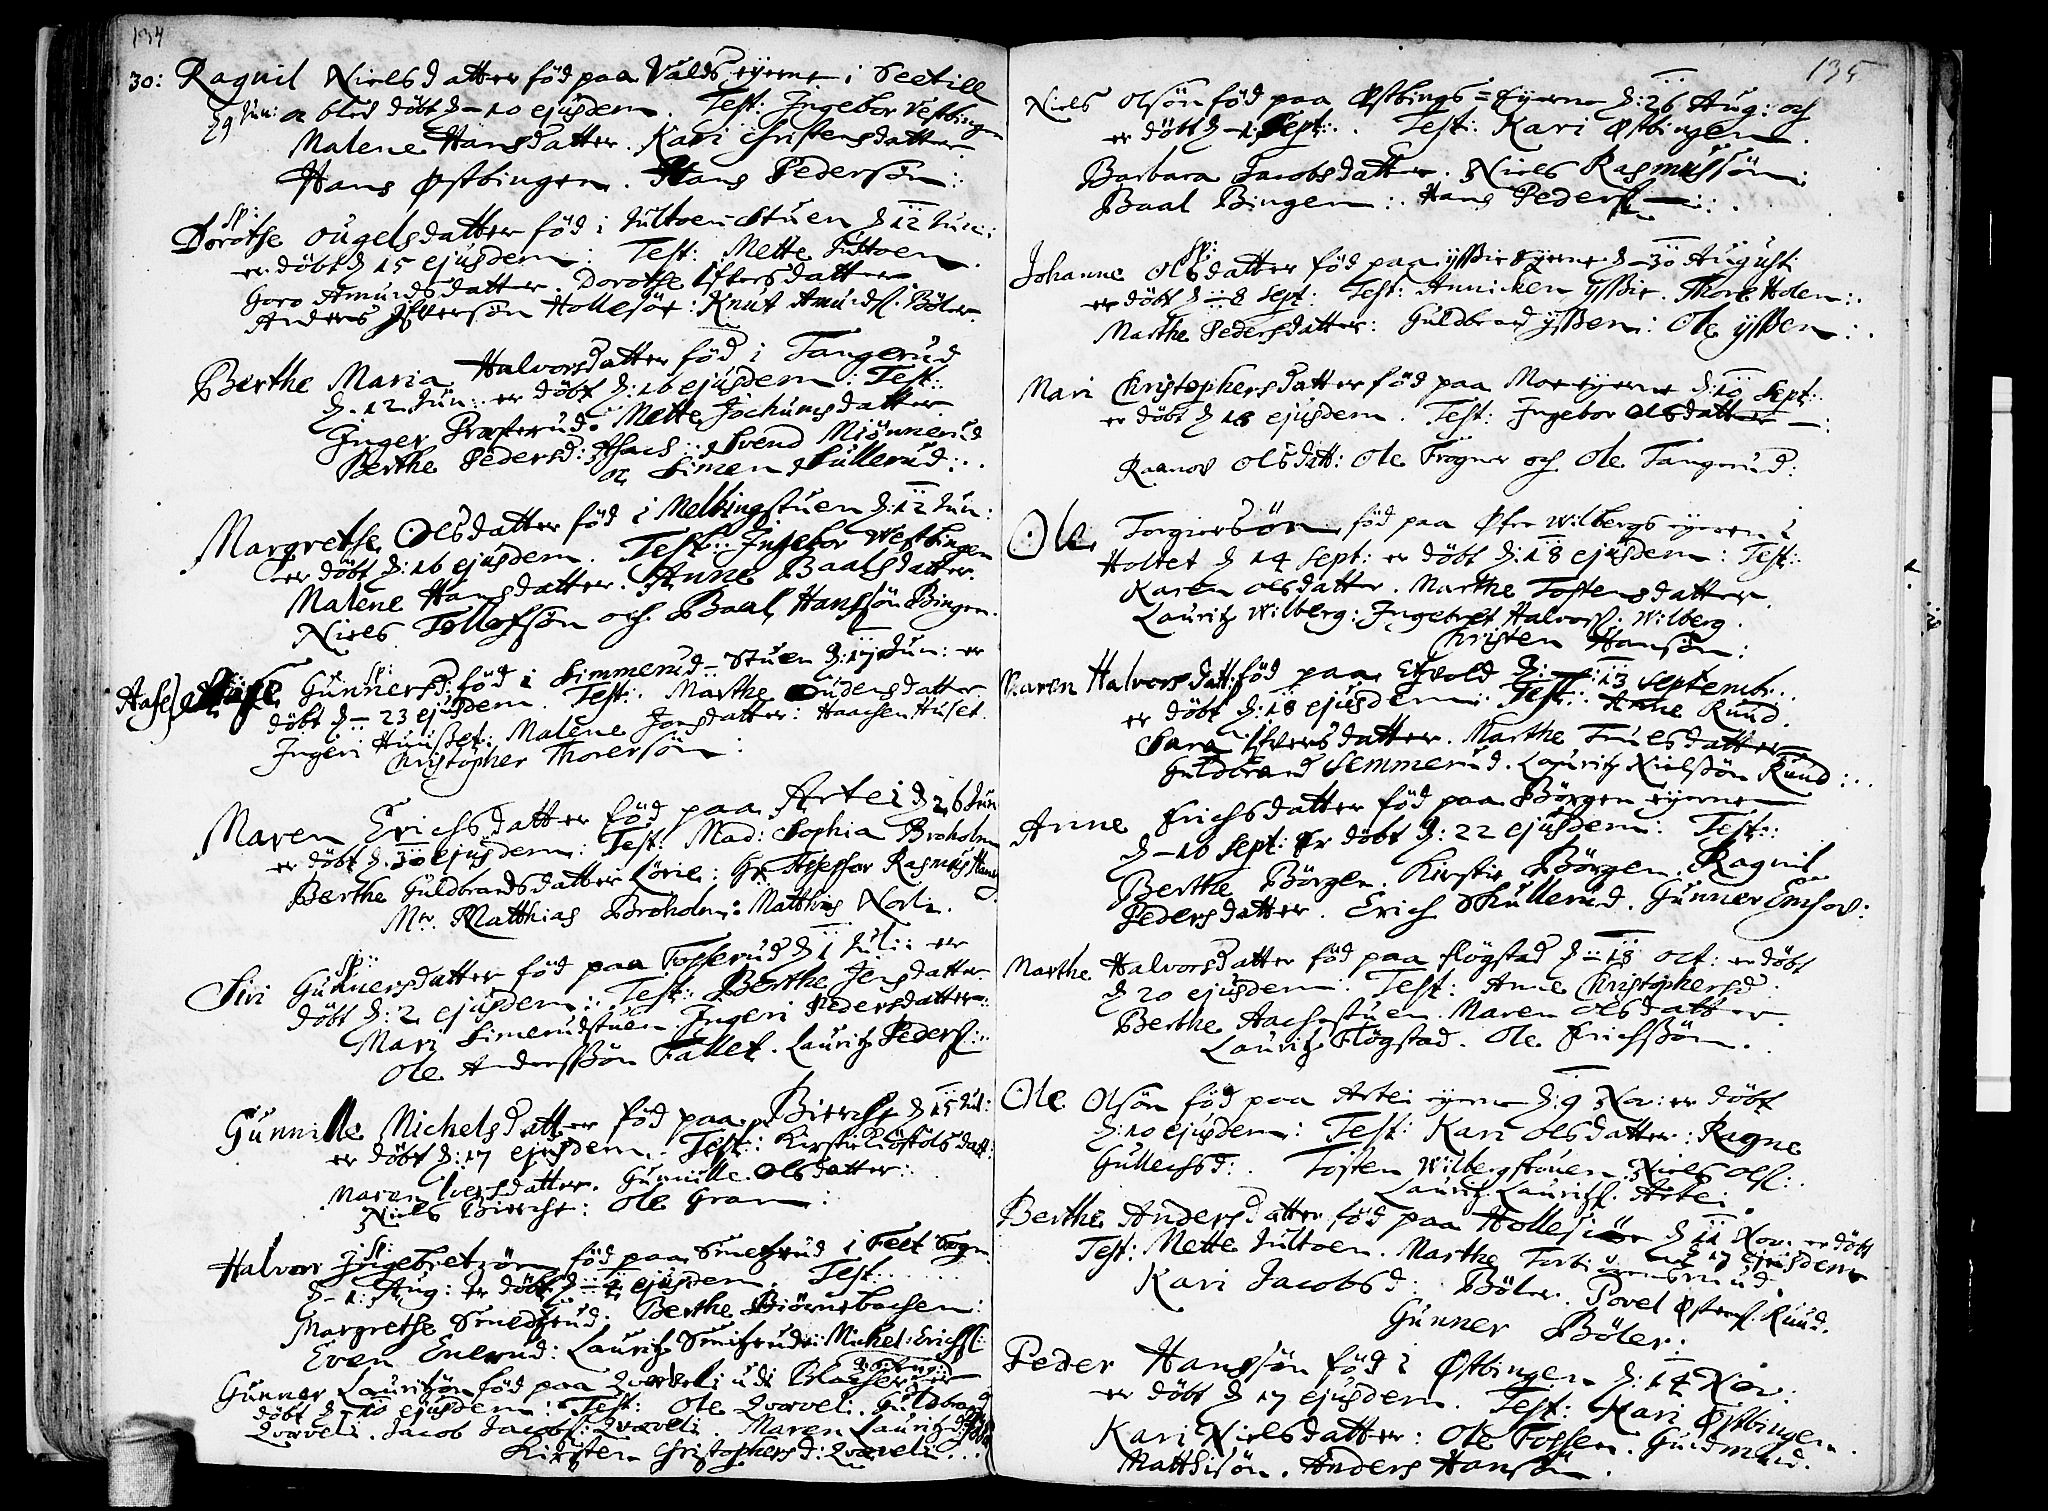 134
30: Ragnil Nielsdatter föd paa Valds eyerne i Seetill
29 Jun: oc blef döbt d. 10 ejusdem. Test: Ingebor Vestbingen
Malene Hansdatter. Kari Christensdatter
Hans Østbingen. Hans Pedersön:
Sp:
Dorothe Ougelsdatter föd i Jultoen-Stuen d 12 Jun:
er döbt d 15 ejusdem: Test: Mette Jultoen.
Goro Amundsdatter. Dorothe Iffversdatter.
Anders Iffversön Hollesör: Knut Amundss. Böler.
Berthe Maria Halvorsdatter föd i Tangerud
d. 12 Jun: er döbt d: 16 ejusdem: Test:
Inger Præsterud. Mette Jochumsdatter
Berthe Pedersd: Svend Miönnerud
oc Simen Skullerud:
Margrethe Olsdatter föd i Melbingstuen d: 12 Jun:
er döbt d: 16 ejusdem. Test: Ingebor Westbingen
Malene Hansdatter. Anne Baalsdatter.
Niels Tollofsön och Baal Hanssön Bingen.
Sp:
Aase Gunnersd: föd i Simmerud-Stuen d: 19 Jun: er
döbt d - 23 ejusdem. Test: Marthe Gudensdatter
Ingeri Huuset: Malene Jonsdatter: Haachen Huset.
Christopher Thorersön:
Maren Erichsdatter föd paa Artei d 26 Jun
er döbt d. 30 ejusdem: Test: Mad: Sophia Broholm
Berthe Guldbrandsdatter Lörie: Hr Assessor Rasmus Hans
Mr. Matthias Broholm: Matthis Norli.
Sp:
Siri Gunnersdatter föd paa Fosserud d 1 Juli: er
döbt d: 2 ejusdem: Test: Berthe Jensdatter
Mari Simerudstuen Ingeri Pedersdatter:
Ole Anderssön Fallet. Lauritz Peders:
Gunnille Michelsdatter föd paa Bierche d 15 Jul:
er döbt d: 17 ejusdem. Test: Kirsti Kiöstolsdatt:
Maren Iversdatter. Gunnille Olsdatter:
Niels Bierche: Ole Gran:
Sp:
Halvor Ingebretzön föd paa Smedzrud i Feet Sogn
d - 1: Aug: er döbt d - 4 ejusdem. Test:
Margrethe Smedzrud. Berthe Biörnebachen:
Even Enerud: Lauritz Smitzrud: Michel Erichss:
Gunner Lauritzön föd paa Qværeli udi Blacher
döbt d - 10 ejusdem: Test: Ole Qværveli. Guldbrand
Qværveli. Jacob Jacobs: Qværveli. Maren Lauritzd
Kirsten Christophersd: Qværveli.
135
Niels Olsön föd paa Østbings = Eyerne d: 26 Aug: och
er döbt d - 1 Sept: Test: Kari Østbingen.
Barbara Jacobsdatter. Niels Rasmussön:
Baal Bingen: Hans Pederss:
Sp:
Johanne Olsdatter föd paa yssie eyerne d - 30 Augusti
er döbt d - 8 Sept: Test: Annichen Yssie. Thore Holen:
Marthe Pedersdatter: Guldbrand yssen: Ole yssen:
Mari Christophersdatter föd paa Moe eyerne d: 10 Sept:
er döbt d 18 ejusdem. Test: Ingebor Olsdatter:
Raanov Olsdatt: Ole Frogner och Ole Tangerud:
Ole Torgiersön föd paa Øfre Wilbergs eyerne i
Holtet d 14 Sept: er döbt d: 18 ejusdem: Test:
Karen Olsdatter. Marthe Tostensdatter.
Lauritz Wilberg: Ingebret Halvorss: Wilberg.
Christen Hansön:
Maren Halvorsdatt: föd paa Egvold d: 13 Septemb:
er döbt d: 18 ejusdem: Test: Anne Ruud.
Sara Ifversdatter. Marthe Truelsdatter
Guldbrand Semmerud. Lauritz Nielssön Ruud:
Anne Erichsdatter föd paa Börgen eyerne
d - 16 Sept: Er döbt d: 22 ejusdem: Test:
Berthe Börgen. Kirsti Börgen. Ragnil
Pedersdatter. Erich Skullerud. Gunner Emhov:
Marthe Halvorsdatter föd paa Flögstad d - 18 Oct: er döbt
d 20 ejusdem. Test: Anne Christophersd:
Berthe Aachestuen Maren Olsdatter.
Lauritz Flögstad. Ole Erichssön.
Ole Olsön föd paa Artei eyerne d: 9 Nov: er döbt
d: 10 ejusdem: Test: Kari Olsdatter: Ragne
Gullechsd: Tosten Wilbergstouen. Niels Olss:
Lauritz Lauritss. Artei.
Berthe Andersdatter föd paa Hollesiör d 11 Nov: er döbt
d 17 ejusdem
Test: Mette Jultoen. Marthe Torbiörnsrud
Kari Jacobsd: Böler. Povel Østenss: Ruud.
Gunner Böler:
Peder Hanssön föd i Østbingen d: 14 Nov:
er döbt d 17 ejusdem. Test: Kari Østbingen.
Kari Nielsdatter: Ole Fossen. Gudmund.
Matthisön. Anders Hansön.